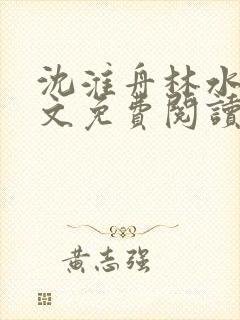 沈淮舟林水
文免費閱讀
黃志強